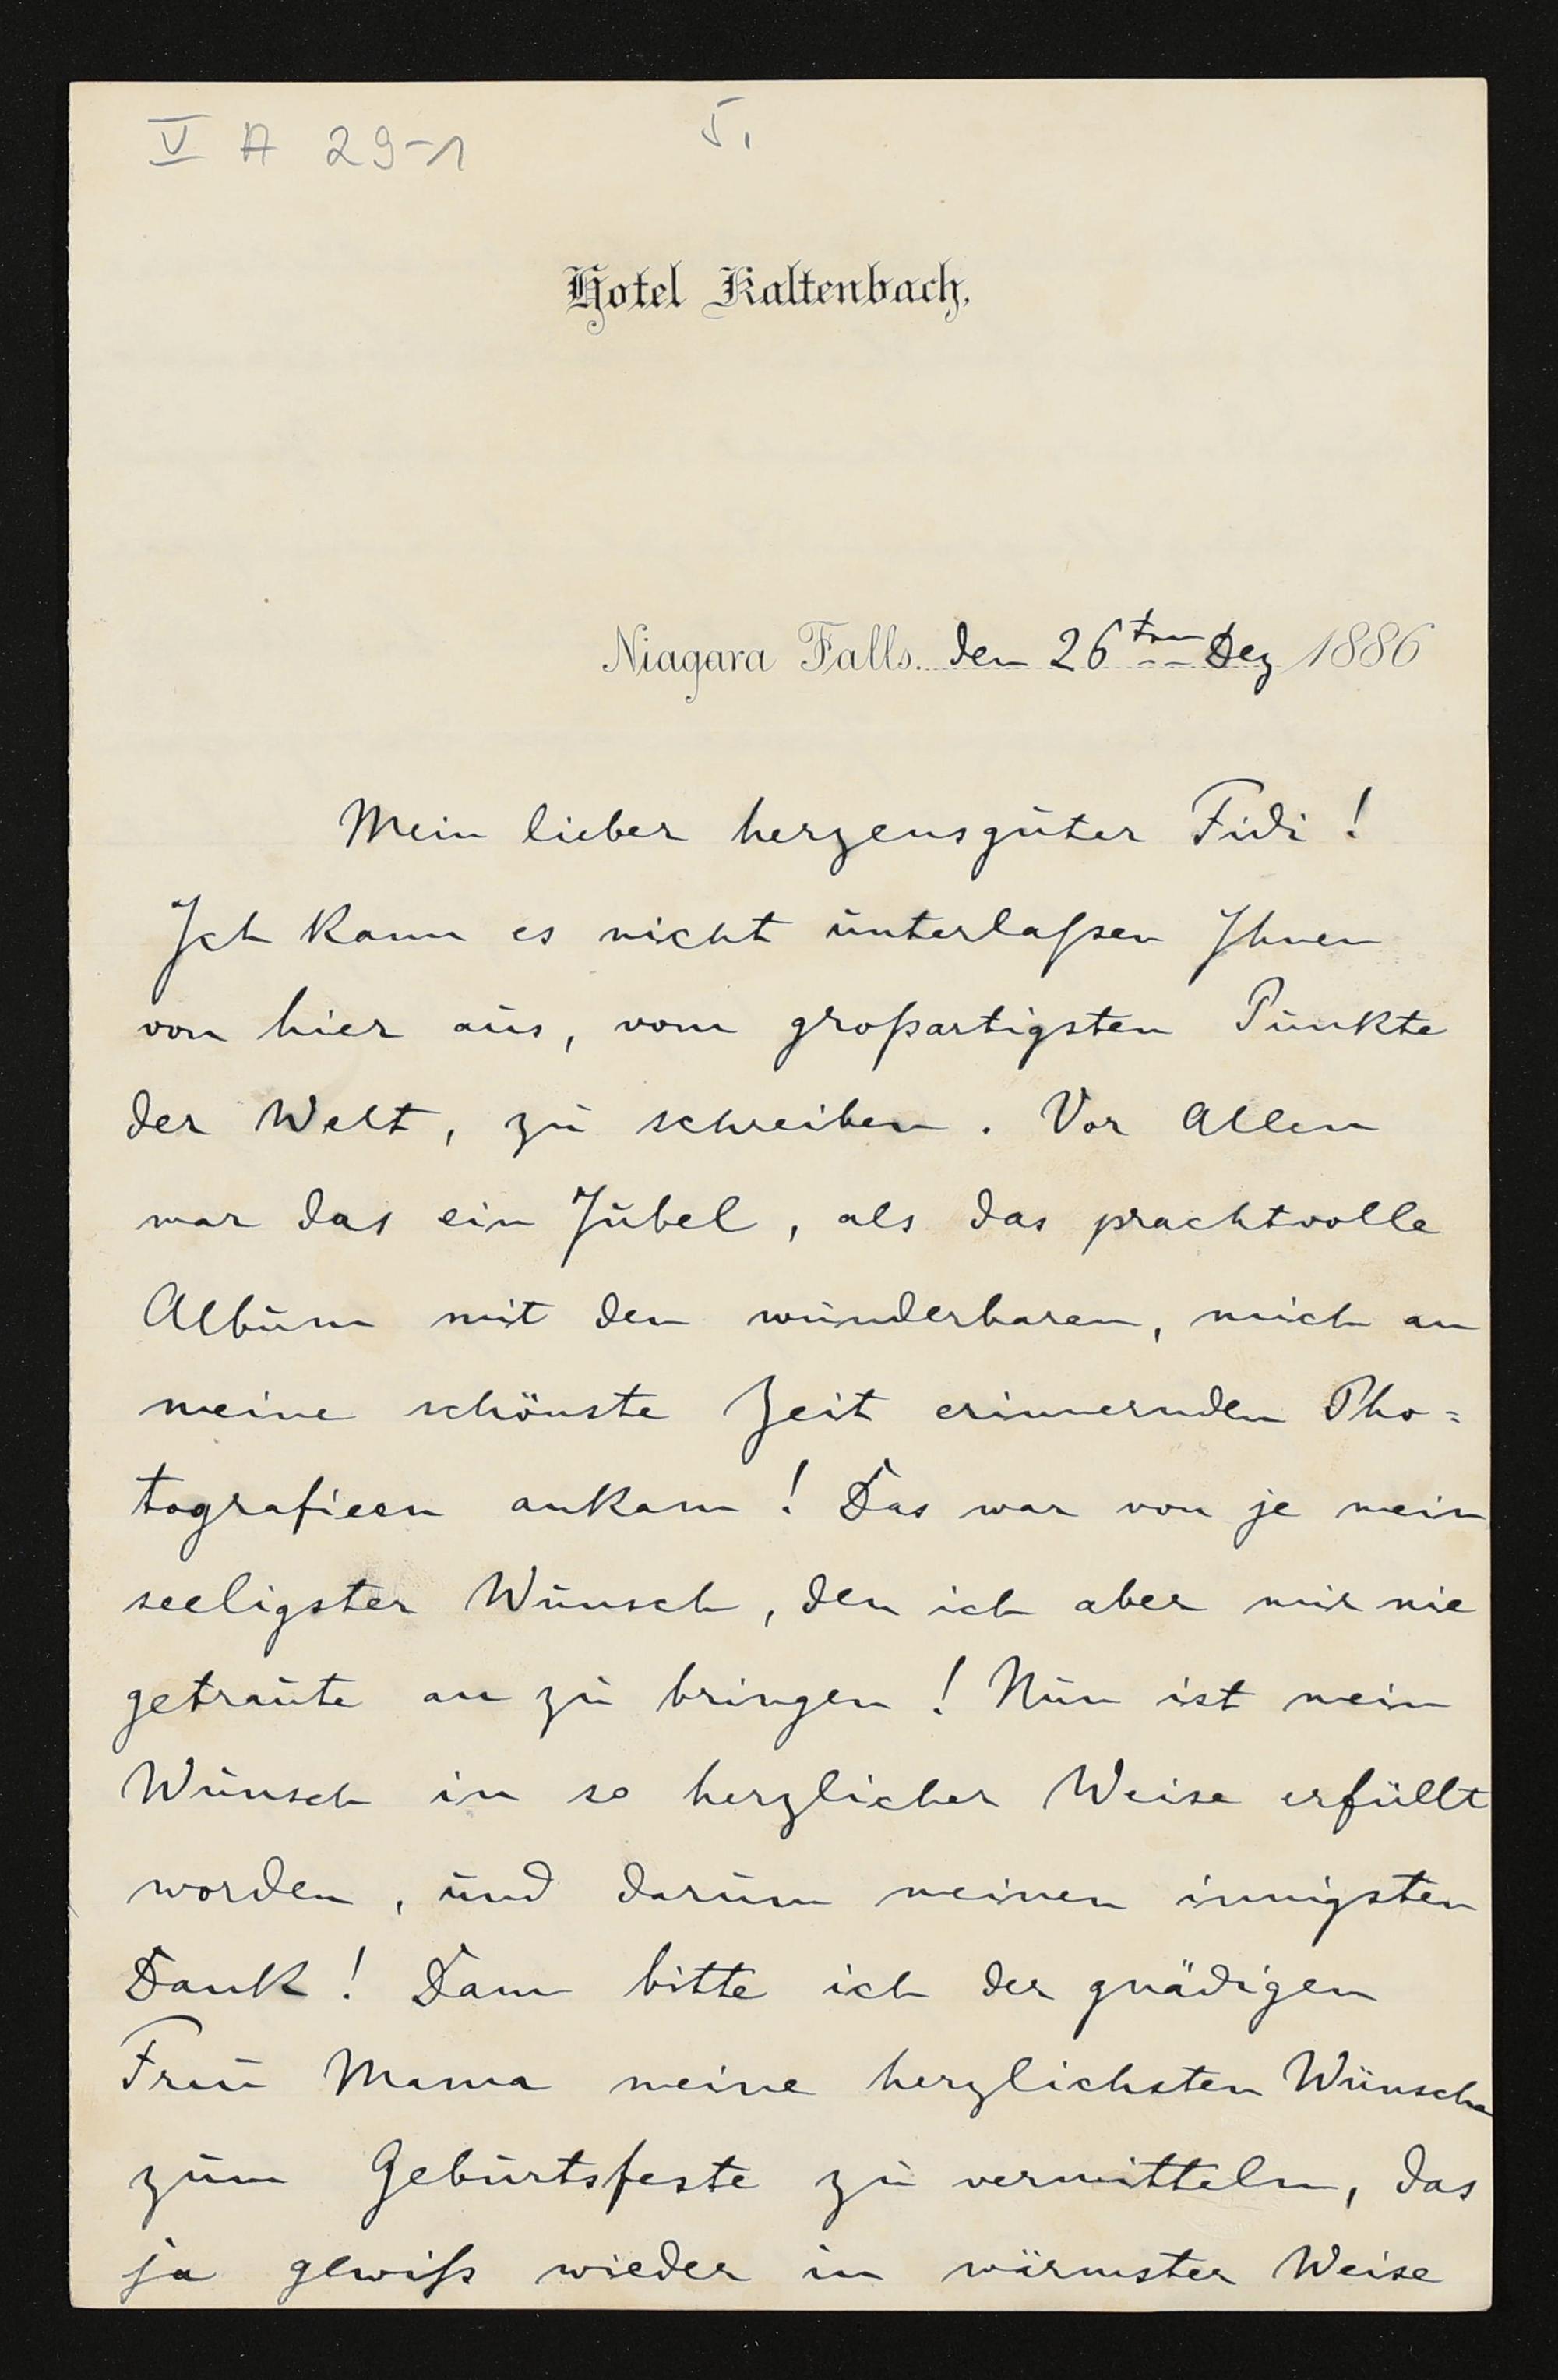 V A 29-1
5.
Hotel Kaltenbach.
Niagara Falls. den 26ten Dez 1886
Mein lieber herzensguter Fidi!
Ich kann es nicht unterlaßen Ihnen
von hier aus, vom großartigsten Punkte
der Welt, zu schreiben. Vor Allem
war das ein Jubel, als das prachtvolle
Album mit den wunderbaren, mich an
meine schönste Zeit erinnernden Pho=
tografieen ankam! Das war von je mein
seeligster Wunsch, den ich aber mir nie
getraute an zu bringen! Nun ist mein
Wunsch in so herzlicher Weise erfüllt
worden, und darum meinen innigsten
Dank! Dann bitte ich der gnädigen
Frau Mama meine herzlichsten Wünsche
zum Geburtsfeste zu vermitteln, das
ja gewiß wieder in wärmster Weise